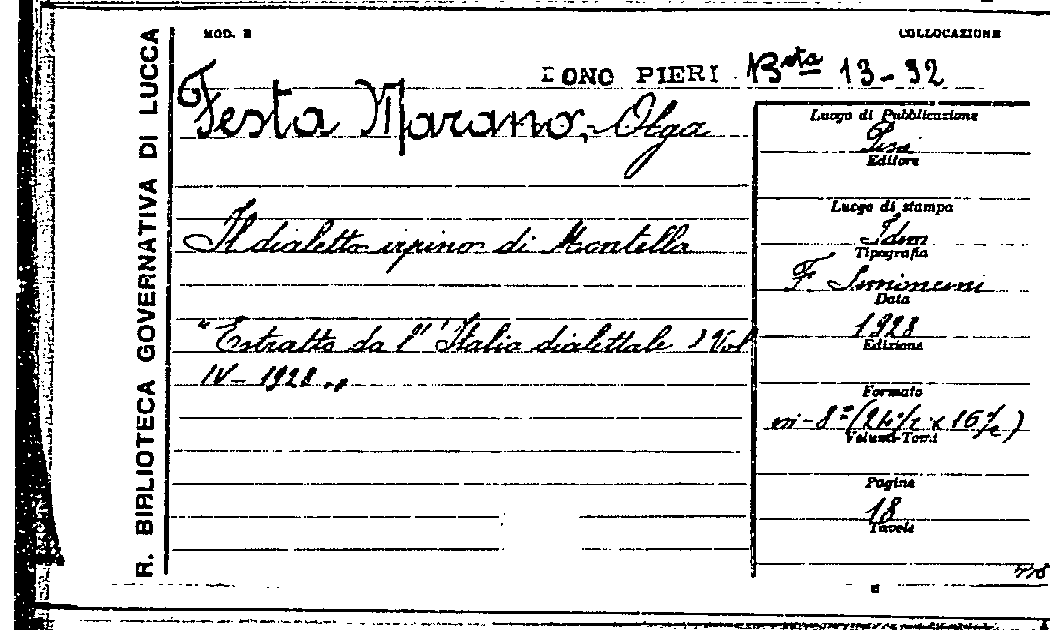 R. BIBLIOTECA GOVERNATIVA DI LUCCA
MOD. B
COLLOCAZIONE
DONO PIERI Bsta 13-32
Festa Marano, Olga
Il dialetto irpino di Montella
"Estratto da l'"Italia dialettale" Vol
IV - 1928"
Luogo di Pubblicazione
Pisa
Editore
Luogo di stampa
Idem
Tipografia
F. Simoncini
Data
1928
Edizione
Formato
in-8° (24 1/2 x 16 1/2)
Volumi-Tomi
Pagine
18
Tavole